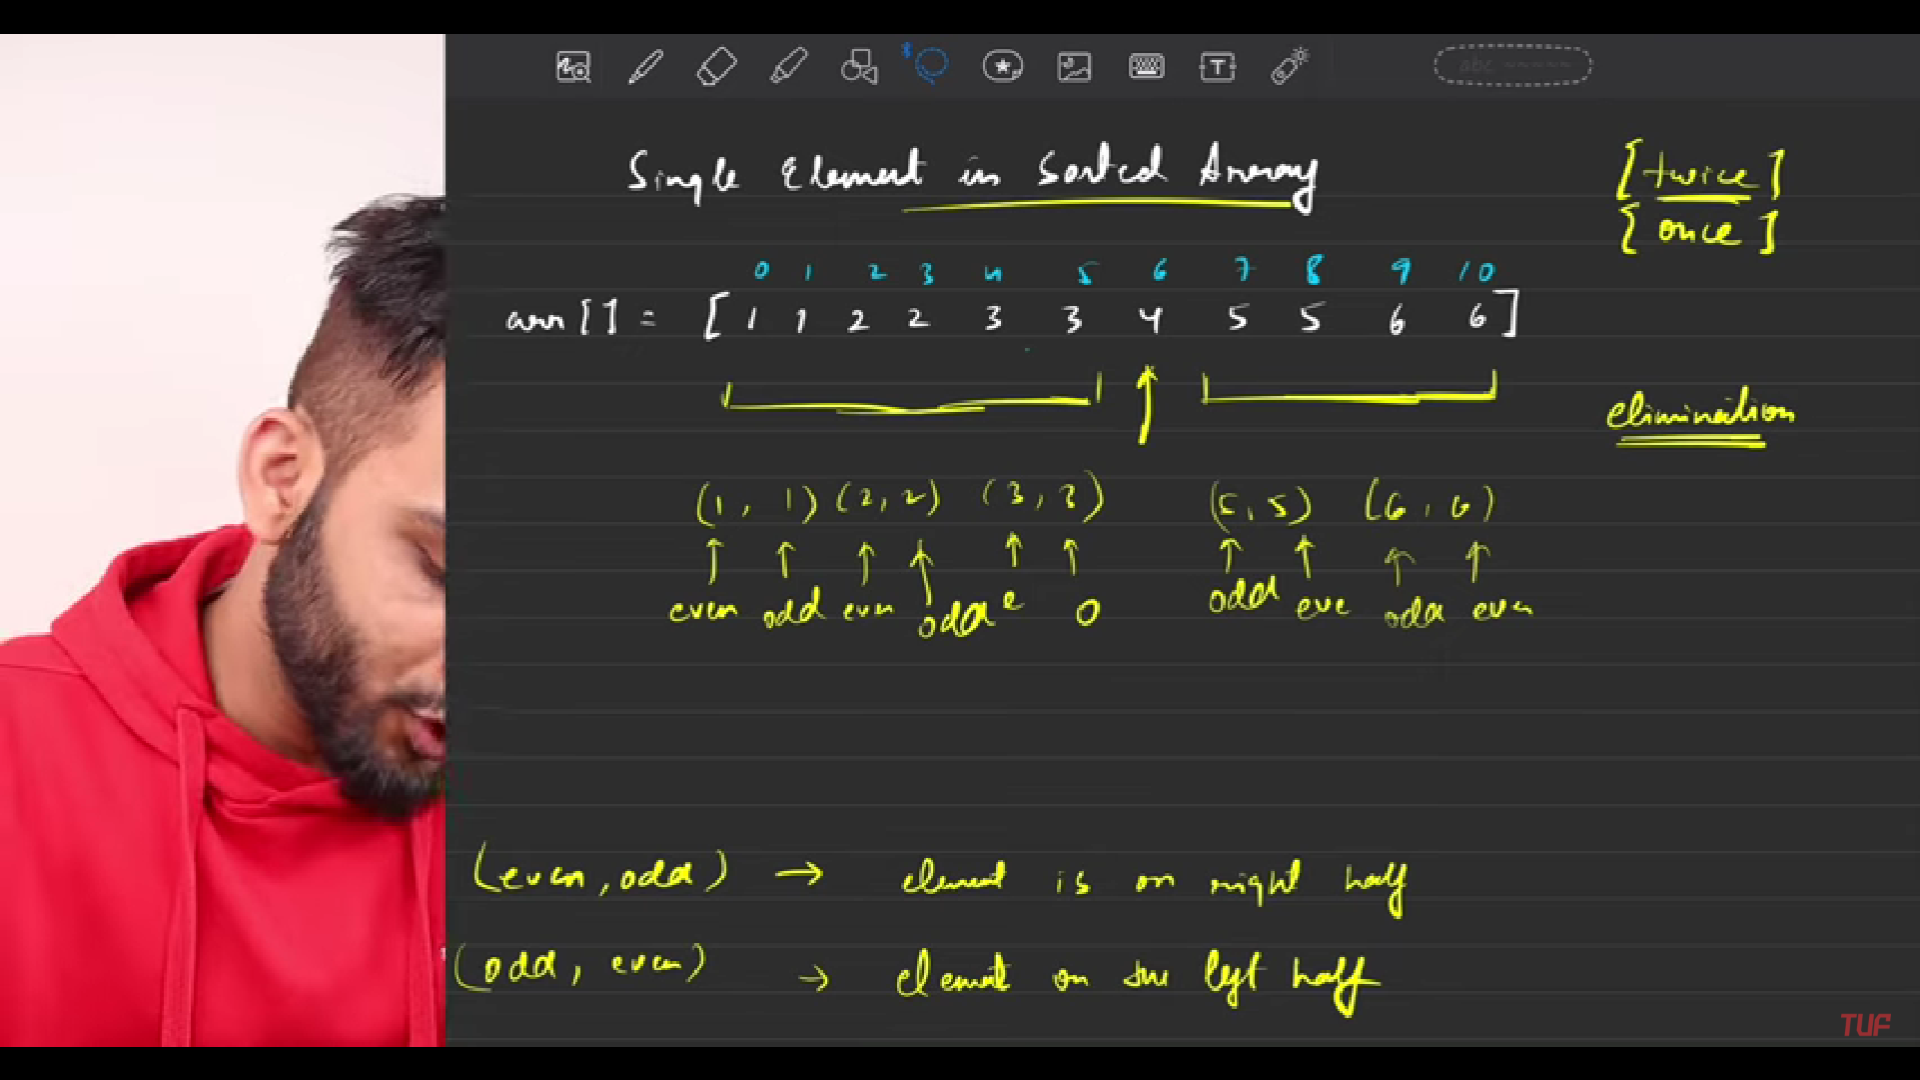 abc
Single Element in Sorted Array
[twice]
[once]
0 1 2 3 4 5 6 7 8 9 10
arr[] = [1 1 2 2 3 3 4 5 5 6 6]
elimination
(1, 1) (2, 2) (3, 3) (5, 5) (6, 6)
even odd even odd e o odd eve odd even
(even, odd) → element is on right half
(odd, even) → element on the left half
TUF